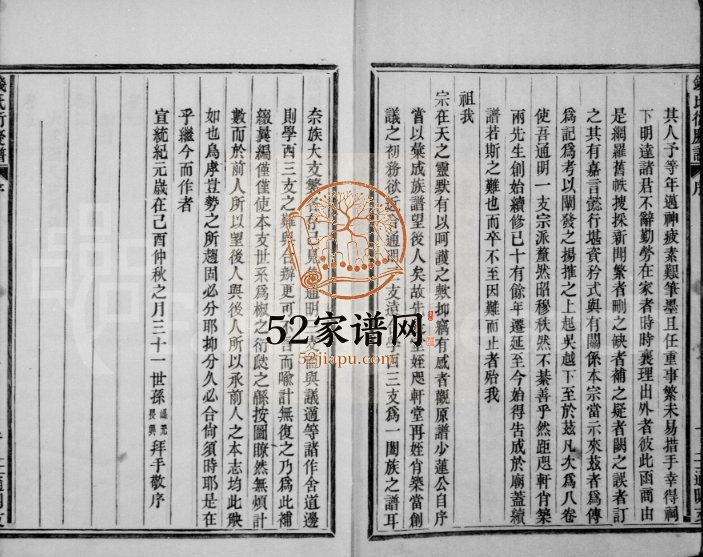 其人予等年邁神疲素艱筆墨且任重事繁未易措手幸得祠
下明達諸君不辭勤勞在家者時時襄理出外者彼此函商由
是網羅舊帙搜採新聞繁者刪之缺者補之疑者闕之誤者訂
之其有嘉言懿行堪資矜式與有關係本宗當示來茲者為傳
為記為考以闡發之揚搉之上起吳越下至於茲凡大為八卷
使吾通明一支宗派釐然昭穆秩然不綦善乎然距愳軒肖築
兩先生創始續修已十有餘年遷延至今始得告成於廟蓋續
譜若斯之難也而卒不至因難而止者殆我
祖我
宗在天之靈默有以呵護之歟抑竊有感者觀原譜少蓮公自序
當以彙成族譜望後人矣故先 姪愳軒堂再姪肖築當創
議之初務欲 通 支 西三支為一闔族之譜耳
奈族大支繁 通明 支 與議適等諸作舍道邊
則學西三支之難與合辦更可不言而喻計無復之乃為此補
綴冀編僅僅使本支世系為椒之衍瓞之緜按圖瞭然無煩計
數而於前人所以望後人與後人所以承前人之本志均此缺
如也烏虖豈勢之所趨固必分耶抑分久必合尚須時耶是在
乎繼今而作者
宣統紀元歲在己酉仲秋之月三十一世孫 拜手敬序
錢氏衍慶譜
序
52家谱网
52jiapu.com